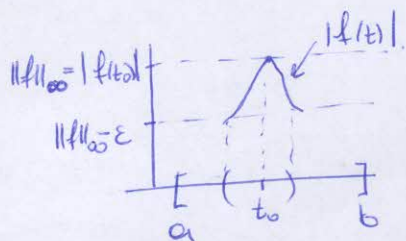 |f(t)|.
||f||∞ = |f(t₀)|
||f||∞-ε
[ ( ) ]
a t₀ b